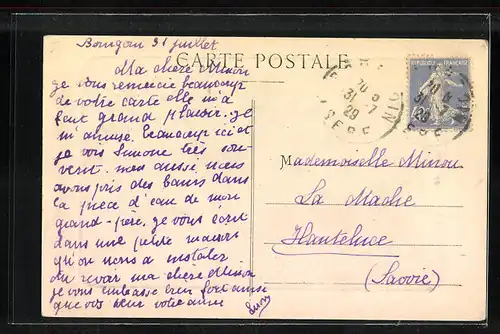 Bourgoin 31 juillet
CARTE POSTALE
Ma chère Minou
je vous remercie beaucoup
de votre carte elle m'a
fait grand plaisir. je
m'amuse beaucoup ici et
je vois Simone très sou-
vent. nous aussi nous
avons pris des bains dans
la pièce d'eau de mon
grand-père, je vous écris
dans une petite maison
qu'on nous a installer
au revoir ma chère Minou
je vous embrasse bien fort ainsi
que vos votre amie
REPUBLIQUE FRANÇAISE
31-7
29
ISERE
Mademoiselle Minou
La Mache
Hauteluce
(Savoie)